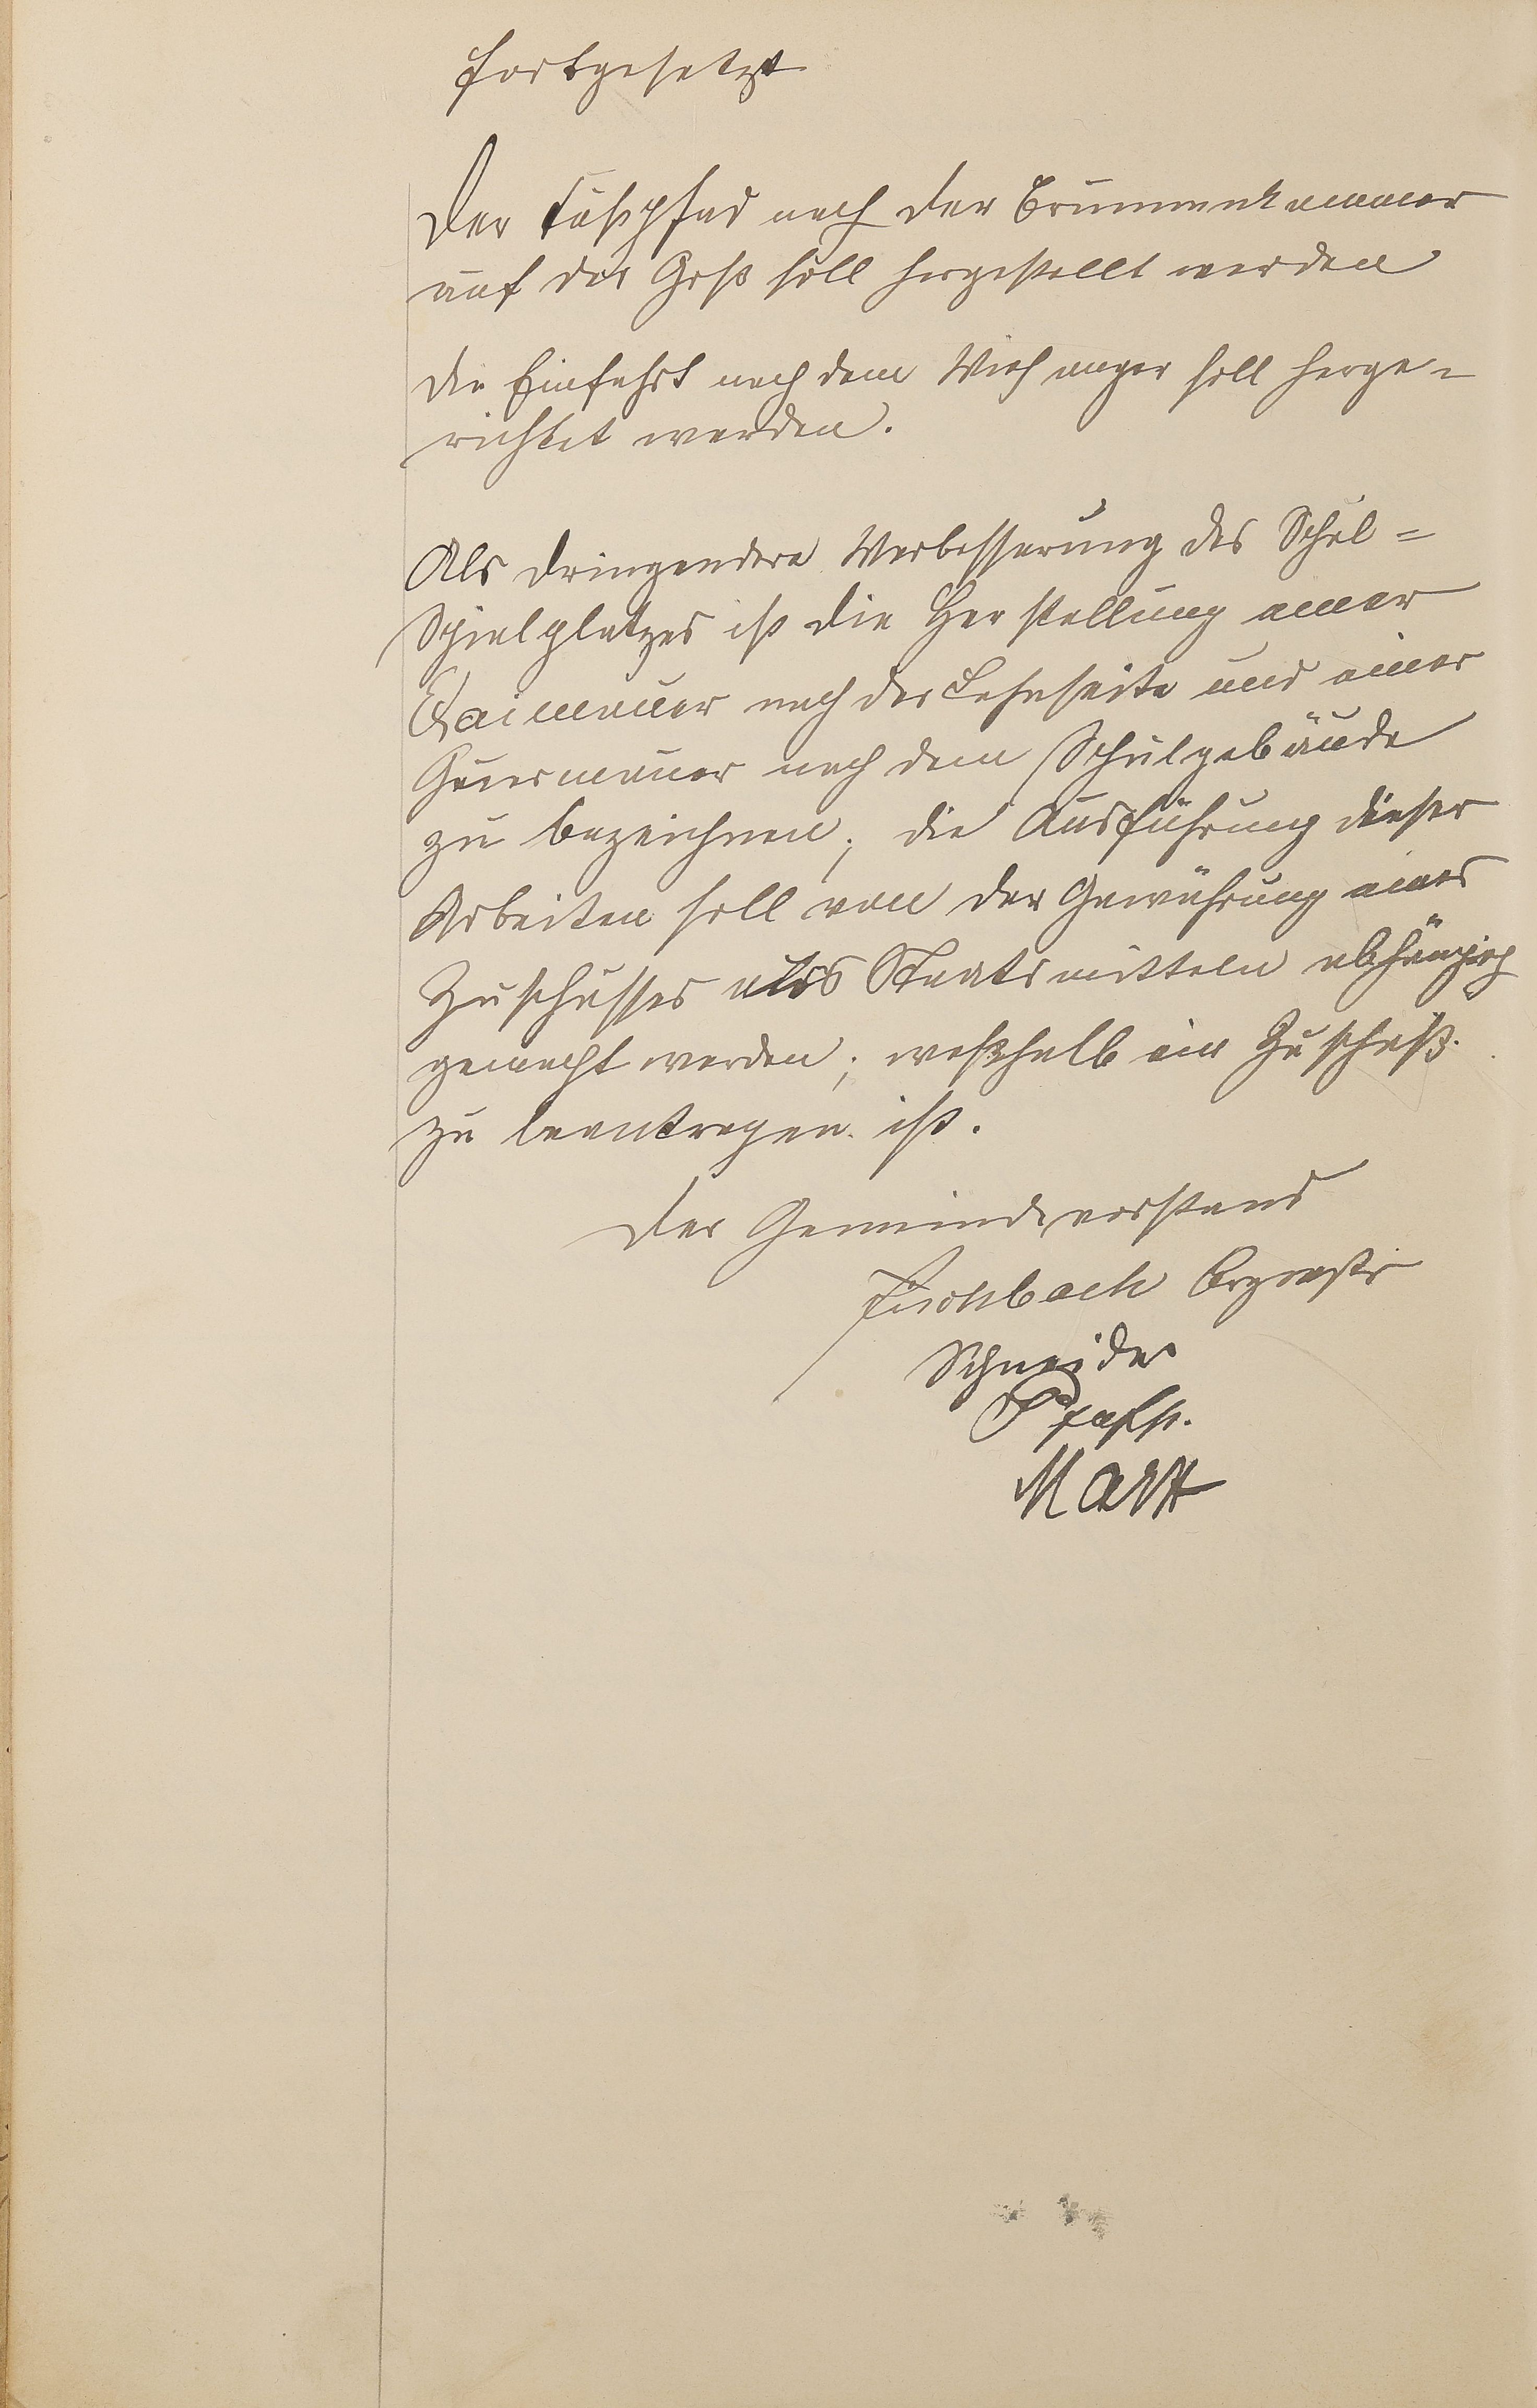 fortgesetzt
Der Fußpfad nach der Brunnenkammer
auf der soll hergestellt werden
Die Einfahrt nach dem Viehanger soll herge-
richtet werden.
Als dringendere Verbesserung des Schul-
Spielplatzes ist die Herstellung einer
Quaimauer nach der Lahnseite und einer
Quermauer nach dem Schulgebäude
zu bezeichnen; die Ausführung dieser
Arbeiten soll von der Gewährung eines
Zuschusses aus Staatsmitteln abhängig
gemacht werden; weßhalb ein Zuschuß
zu beantragen ist.
Der Gemeindevorstand
Brgrmstr
Schneider
Marx